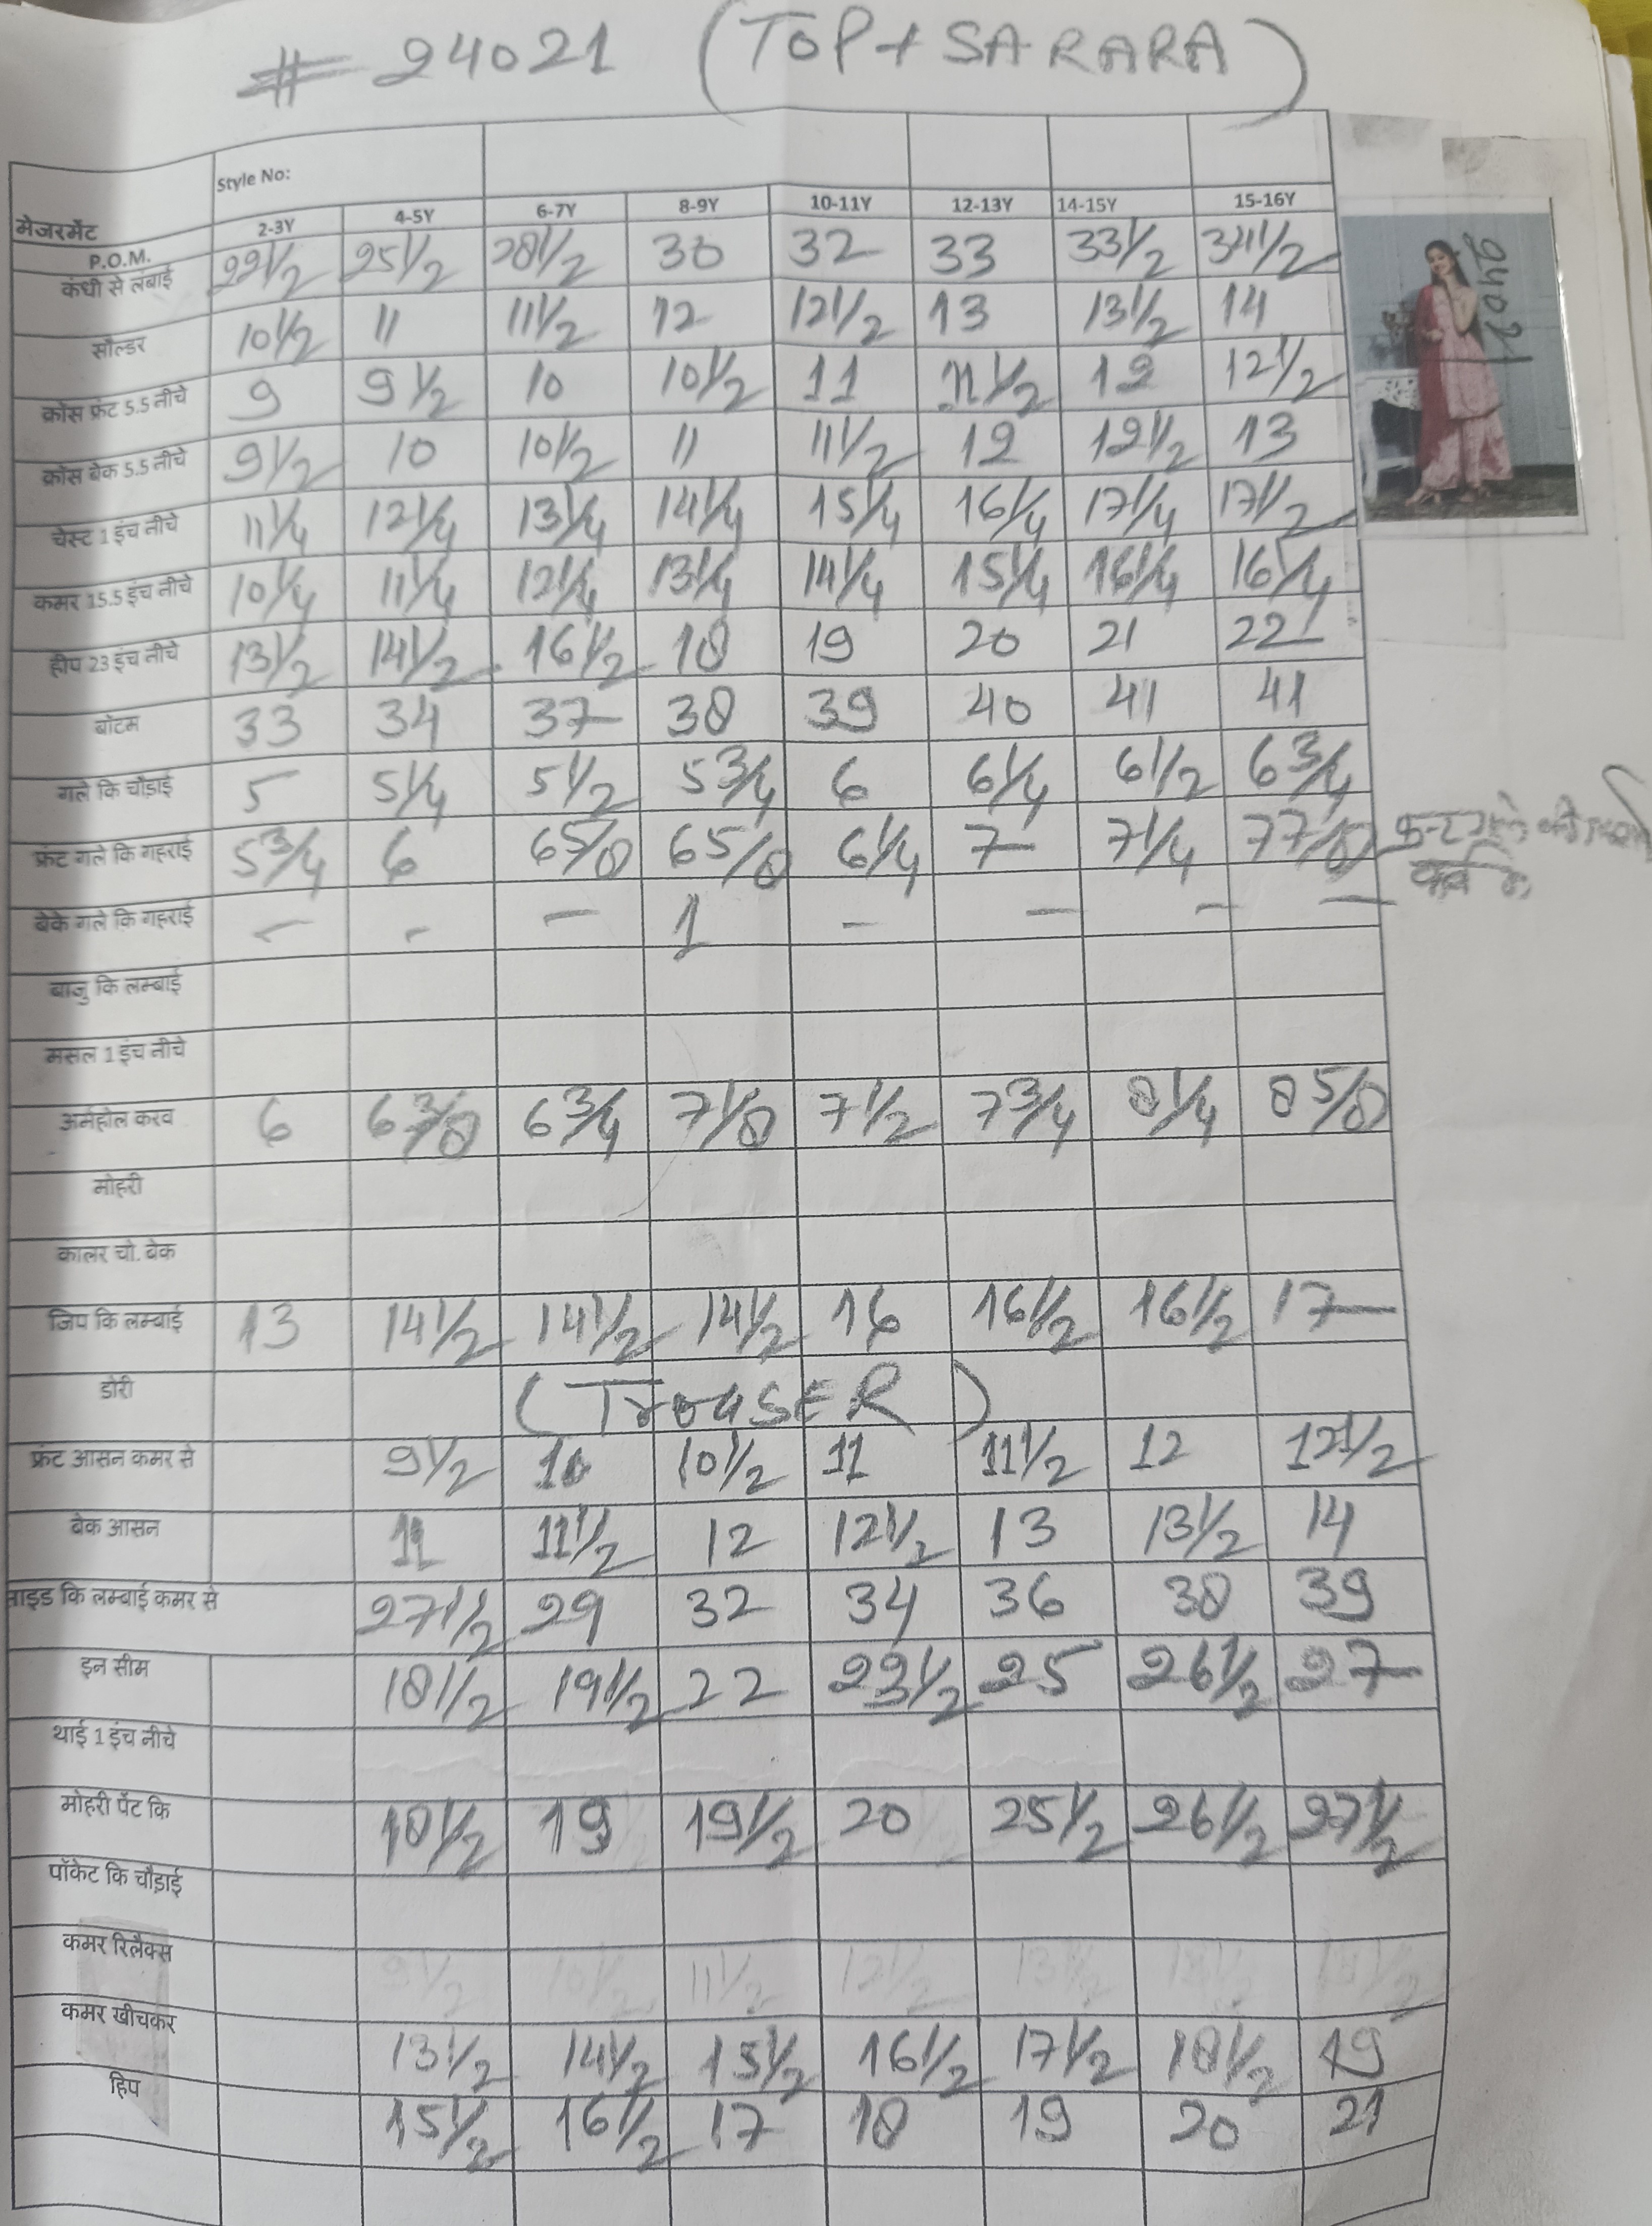 # 24021 (TOP + SARARA)
Style No:
मेजरमेंट 2-3Y 4-5Y 6-7Y 8-9Y 10-11Y 12-13Y 14-15Y 15-16Y
P.O.M.
कंधी से लंबाई 22 1/2 25 1/2 28 1/2 30 32 33 33 1/2 34 1/2
सोल्डर 10 1/2 11 11 1/2 12 12 1/2 13 13 1/2 14
क्रोस फ्रंट 5.5 नीचे 9 9 1/2 10 10 1/2 11 11 1/2 12 12 1/2
क्रोस बेक 5.5 नीचे 9 1/2 10 10 1/2 11 11 1/2 12 12 1/2 13
चेस्ट 1 इंच नीचे 11 1/4 12 1/4 13 1/4 14 1/4 15 1/4 16 1/4 17 1/4 17 1/2
कमर 15.5 इंच नीचे 10 1/4 11 1/4 12 1/4 13 1/4 14 1/4 15 1/4 16 1/4 16 1/4
हीप 23 इंच नीचे 13 1/2 14 1/2 16 1/2 18 19 20 21 22
बॉटम 33 34 37 38 39 40 41 41
गले कि चौड़ाई 5 5 1/4 5 1/2 5 3/4 6 6 1/4 6 1/2 6 3/4
फ्रंट गले कि गहराई 5 3/4 6 6 5/8 6 5/8 6 1/4 7 7 1/4 7 7/8
बेके गले कि गहराई - - - 1 - - - -
बाजु कि लम्बाई
मसल 1 इंच नीचे
अर्महोल करव 6 6 3/8 6 3/4 7 1/8 7 1/2 7 3/4 8 1/4 8 5/8
मोहरी
कालर चो. बेक
जिप कि लम्बाई 13 14 1/2 14 1/2 14 1/2 16 16 1/2 16 1/2 17
डोरी (TroUSER)
फ्रंट आसन कमर से 9 1/2 10 10 1/2 11 11 1/2 12 12 1/2
बेक आसन 11 11 1/2 12 12 1/2 13 13 1/2 14
साइड कि लम्बाई कमर से 27 1/2 29 32 34 36 38 39
इन सीम 18 1/2 19 1/2 22 23 1/2 25 26 1/2 27
थाई 1 इंच नीचे
मोहरी पेंट कि 18 1/2 19 19 1/2 20 25 1/2 26 1/2 27 1/2
पॉकेट कि चौड़ाई
कमर रिलैक्स 9 1/2 10 1/2 11 1/2 12 1/2
कमर खीचकर 13 1/2 14 1/2 15 1/2 16 1/2 17 1/2 18 1/2 19
हिप 15 1/2 16 1/2 17 18 19 20 21
24021